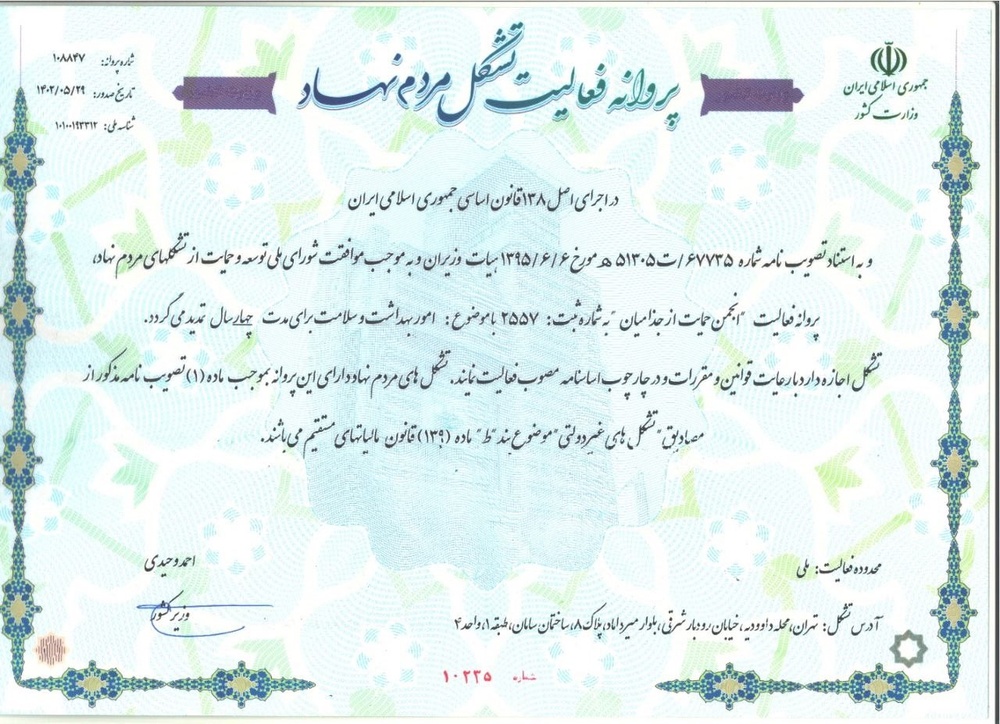 جمهوری اسلامی ایران
وزارت کشور
پروانه فعالیت تشکل مردم نهاد
شماره پروانه: ۱۰۸۸۴۷
تاریخ صدور: ۱۴۰۲/۰۵/۲۹
شناسه ملی: ۱۰۱۰۰۱۹۳۳۱۲
در اجرای اصل ۱۳۸ قانون اساسی جمهوری اسلامی ایران
و به استناد تصویب نامه شماره ۶۷۷۳۵/ت۵۱۳۰۵ هـ مورخ ۱۳۹۵/۶/۶ هیات وزیران و به موجب موافقت شورای ملی توسعه و حمایت از تشکلهای مردم نهاد،
پروانه فعالیت "انجمن حمایت از جذامیان" به شماره ثبت: ۲۵۵۷ با موضوع: امور بهداشت و سلامت برای مدت چهار سال تمدید می گردد.
تشکل اجازه دارد با رعایت قوانین و مقررات و در چارچوب اساسنامه مصوب فعالیت نمایند. تشکل های مردم نهاد دارای این پروانه بموجب ماده (۱) تصویب نامه مذکور از
مصادیق "تشکل های غیردولتی" موضوع بند "ط" ماده (۱۳۹) قانون مالیاتهای مستقیم می باشند.
محدوده فعالیت: ملی
احمد وحیدی
وزیر کشور
آدرس تشکل: تهران، محله داوودیه، خیابان رودبار شرقی، بلوار میرداماد، پلاک ۸، ساختمان سامان، طبقه ۱، واحد ۴
شماره ۱۰۲۳۵